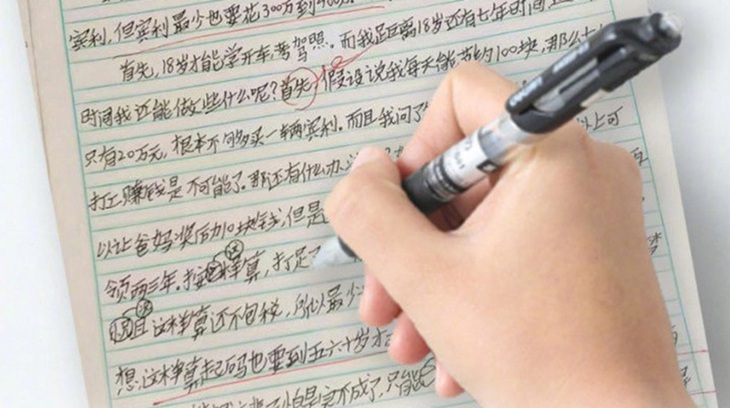 宾利，但宾利最少也要花300万到400万。
首先，18岁才能学开车，考驾照。而我距离18岁还有七年时间，
时间我还能做些什么呢？首先，假设说我每天能节约100块，那么
只有20万元，根本不够买一辆宾利。而且我问了
打工赚钱是不可能了。那还有什么办 上可
以让爸妈奖励10块钱，但是
领两三年。按这样算，打足了
且这样算还不包税，所以最少
想，这样算起码也要到五六十岁才
怕是实不成了，只能